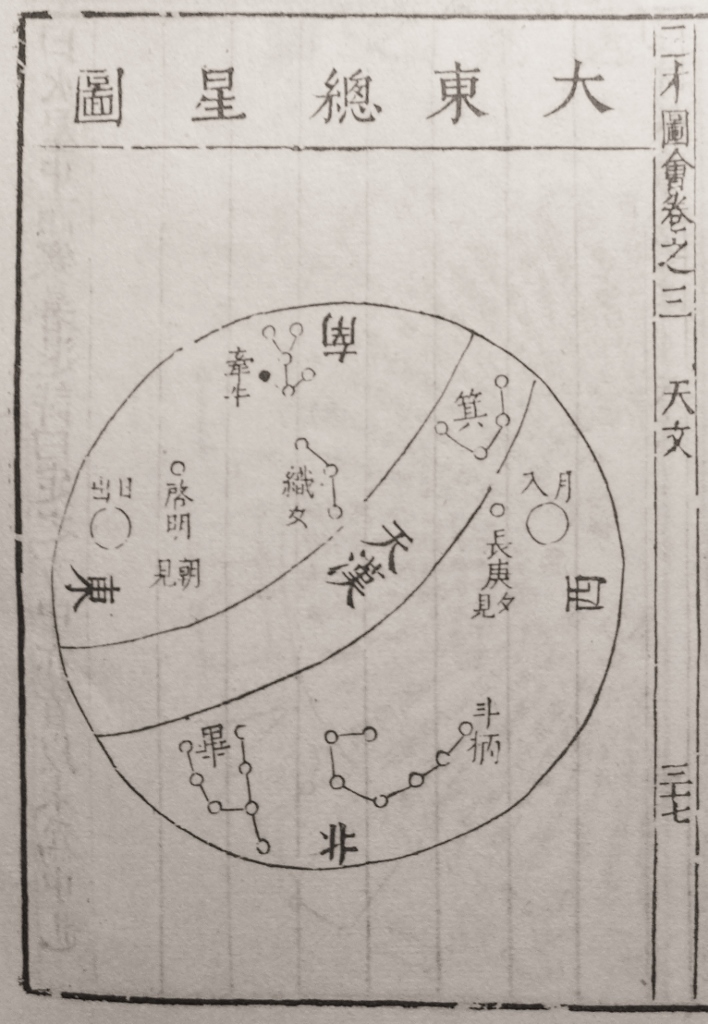 三才圖會卷之三
天文
三十七
大東總星圖
南
牽牛
箕
織女
月入
啓明
朝見
長庚
夕見
天漢
東
西
斗柄
畢
北